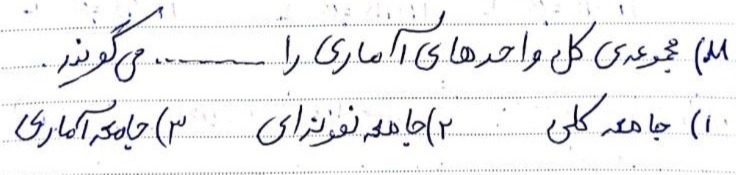 ۱۸) مجموعه‌ی کل واحدهای آماری را ............ می گویند.
۱) جامعه کلی ۲) جامعه نمونه‌ای ۳) جامعه آماری